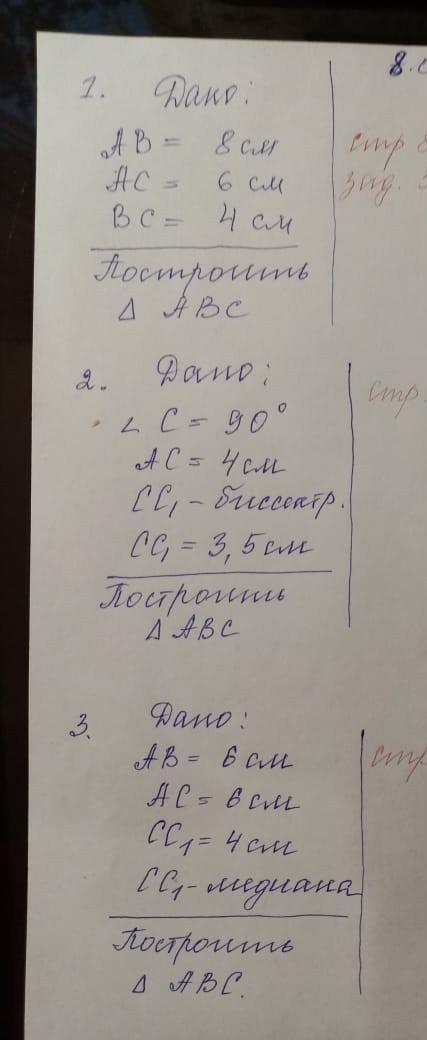 1. Дано:
AB = 8 см
AC = 6 см
BC = 4 см
Построить
Δ ABC
стр
зад.
2. Дано:
∠ C = 90°
AC = 4 см
CC₁ - биссектр.
CC₁ = 3,5 см
Построить
Δ ABC
стр.
3. Дано:
AB = 6 см
AC = 6 см
CC₁ = 4 см
CC₁ - медиана
Построить
Δ ABC.
стр